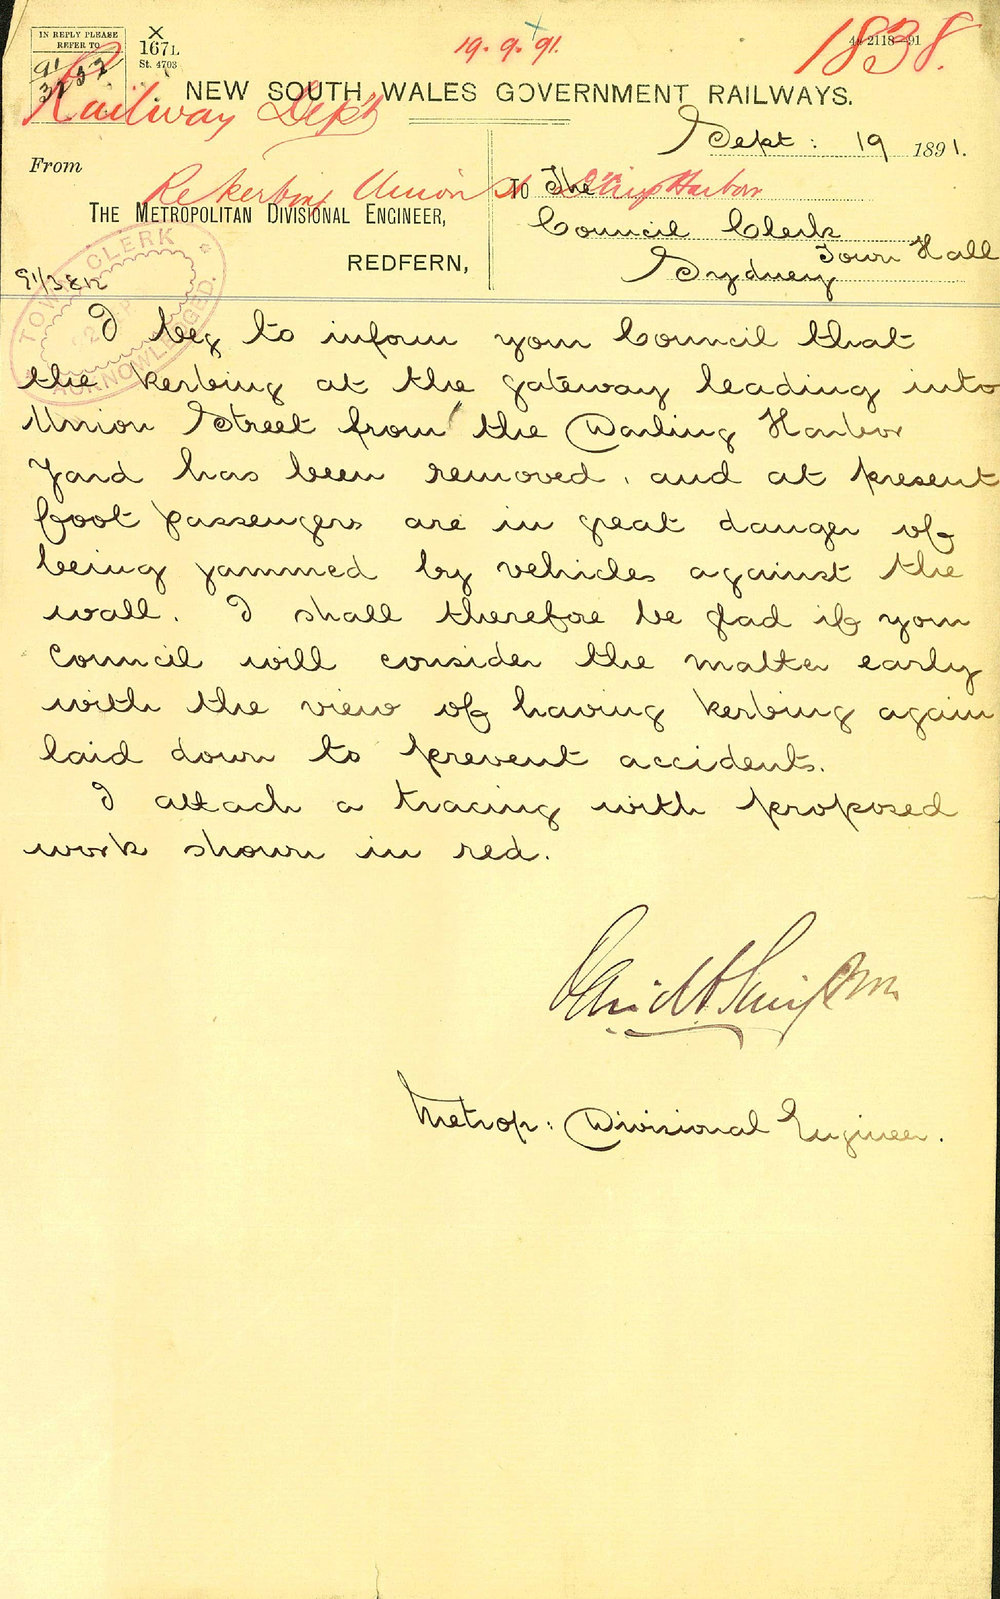 IN REPLY PLEASE
REFER TO
91
167L
St. 4703
19. 9. 91.
1838.
2118—91
NEW SOUTH WALES GOVERNMENT RAILWAYS.
Railway Dep't
Sept: 19 1891.
From
Rekerbing Union St D'ling Harbor
TO The
THE METROPOLITAN DIVISIONAL ENGINEER,
Council Clerk
Town Hall
REDFERN,
Sydney
91/3812
TOWN CLERK
ACKNOWLEDGED.
I beg to inform your Council that
the kerbing at the gateway leading into
Union Street from the Darling Harbor
Yard has been removed, and at present
foot passengers are in great danger of
being jammed by vehicles against the
wall. I shall therefore be glad if your
Council will consider the matter early
with the view of having kerbing again
laid down to prevent accidents.
I attach a tracing with proposed
work shown in red.
Metrop: Divisional Engineer.